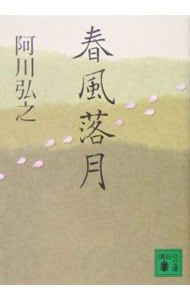 春風落月
阿川弘之
講談社文庫